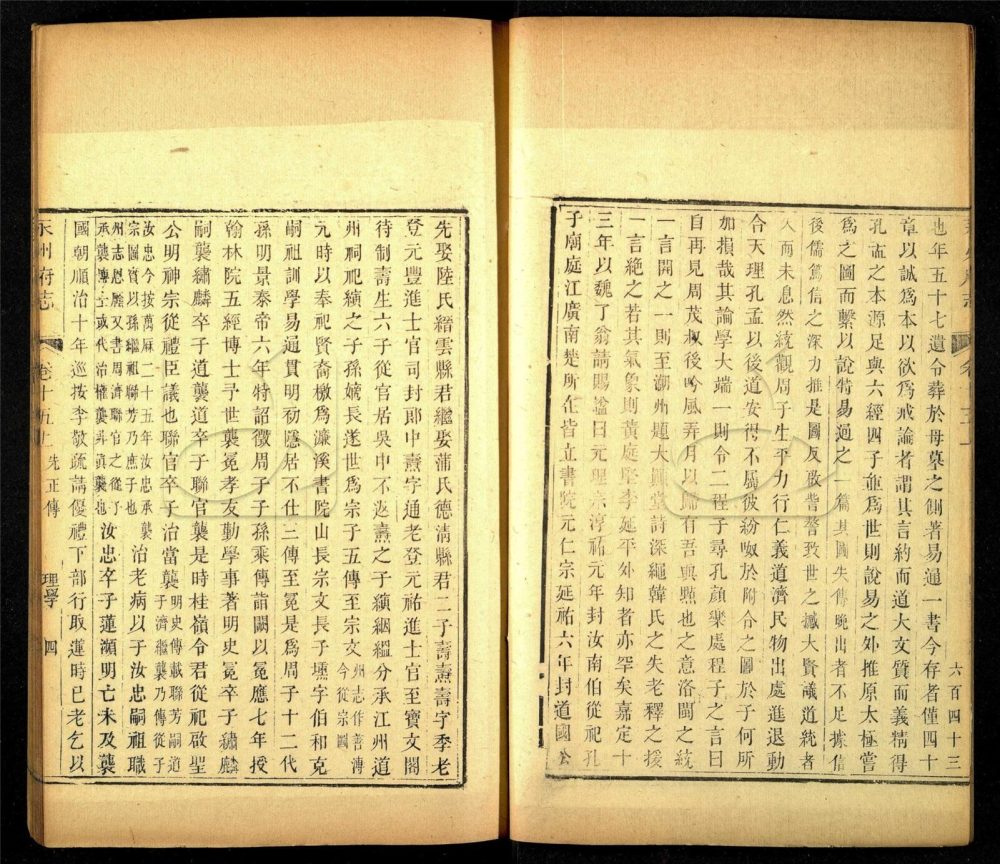 六百四十三
也年五十七遺令葬於母墓之側著易通一書今存者僅四十
章以誠爲本以欲爲戒論者謂其言約而道大文質而義精得
孔孟之本源足與六經四子並爲世則說易之外推原太極嘗
爲之圖而繫以說特易通之一篇其圖失傳晚出者不足據信
後儒篤信之深力推是圖反啟訾謷致世之撼大賢議道統者
人而未息然統觀周子生平力行仁義道濟民物出處進退動
合天理孔孟以後道安得不屬彼紛呶於附合之圖於子何所
加損哉其論學大端一則令二程子尋孔顏樂處程子之言曰
自再見周茂叔後吟風弄月以歸有吾與點也之意洛閩之統
一言開之一則至潮州題大顚堂詩深繩韓氏之失老釋之援
一言絕之若其氣象則黃庭堅李延平外知者亦罕矣嘉定十
三年以魏了翁請賜諡曰元理宗淳祐元年封汝南伯從祀孔
子廟庭江廣南楚所在皆立書院元仁宗延祐六年封道國公
先娶陸氏縉雲縣君繼娶蒲氏德淸縣君二子壽燾壽字季老
登元豐進士官司封郎中燾字通老登元祐進士官至寶文閣
待制壽生六子從官居吳中不返燾之子縝絪縕分承江州道
州祠祀縝之子孫虓長遂世爲宗子五傳至宗文州志作善溥今從宗圖
元時以奉祀賢裔檄爲濂溪書院山長宗文長子壎字伯和克
嗣祖訓學易通貫明初隱居不仕三傳至冕是爲周子十二代
孫明景泰帝六年特詔徵周子子孫乘傳詣闕以冕應七年授
翰林院五經博士予世襲冕孝友勤學事著明史冕卒子繡麟
嗣襲繡麟卒子道襲道卒子聯官襲是時桂嶺令君從祀啟聖
公明神宗從禮臣議也聯官卒子治當襲明史傳載聯芳嗣道子濟繼襲乃傳從子
汝忠今按萬厤二十五年汝忠承襲宗圖實以孫繼祖聯芳乃庶子也州志恩廕又書周濟聯官之從子承襲博士或代治權襲非眞襲也治老病以子汝忠嗣祖職
汝忠卒子蓮瀕明亡未及襲
國朝順治十年巡按李敬疏請優禮下部行取蓮時已老乞以
永州府志
卷十五上
先正傳
理學
四